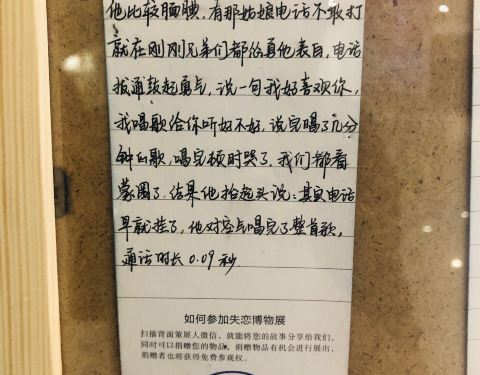 他比较腼腆，有那姑娘电话不敢打
就在刚刚兄弟们都怂恿他表白，电话
拨通鼓起勇气，说一句我好喜欢你，
我唱歌给你听好不好，说完唱了几分
钟的歌，唱完顿时哭了，我们都看
蒙圈了．结果他抬起头说：其实电话
早就挂了，他对空气唱完了整首歌，
通话时长0.09秒
如何参加失恋博物展
扫描背面策展人微信，就能将您的故事分享给我们，
同时可以捐赠您的物品，捐赠物品有机会进行展出，
捐赠者也将获得免费参观权。